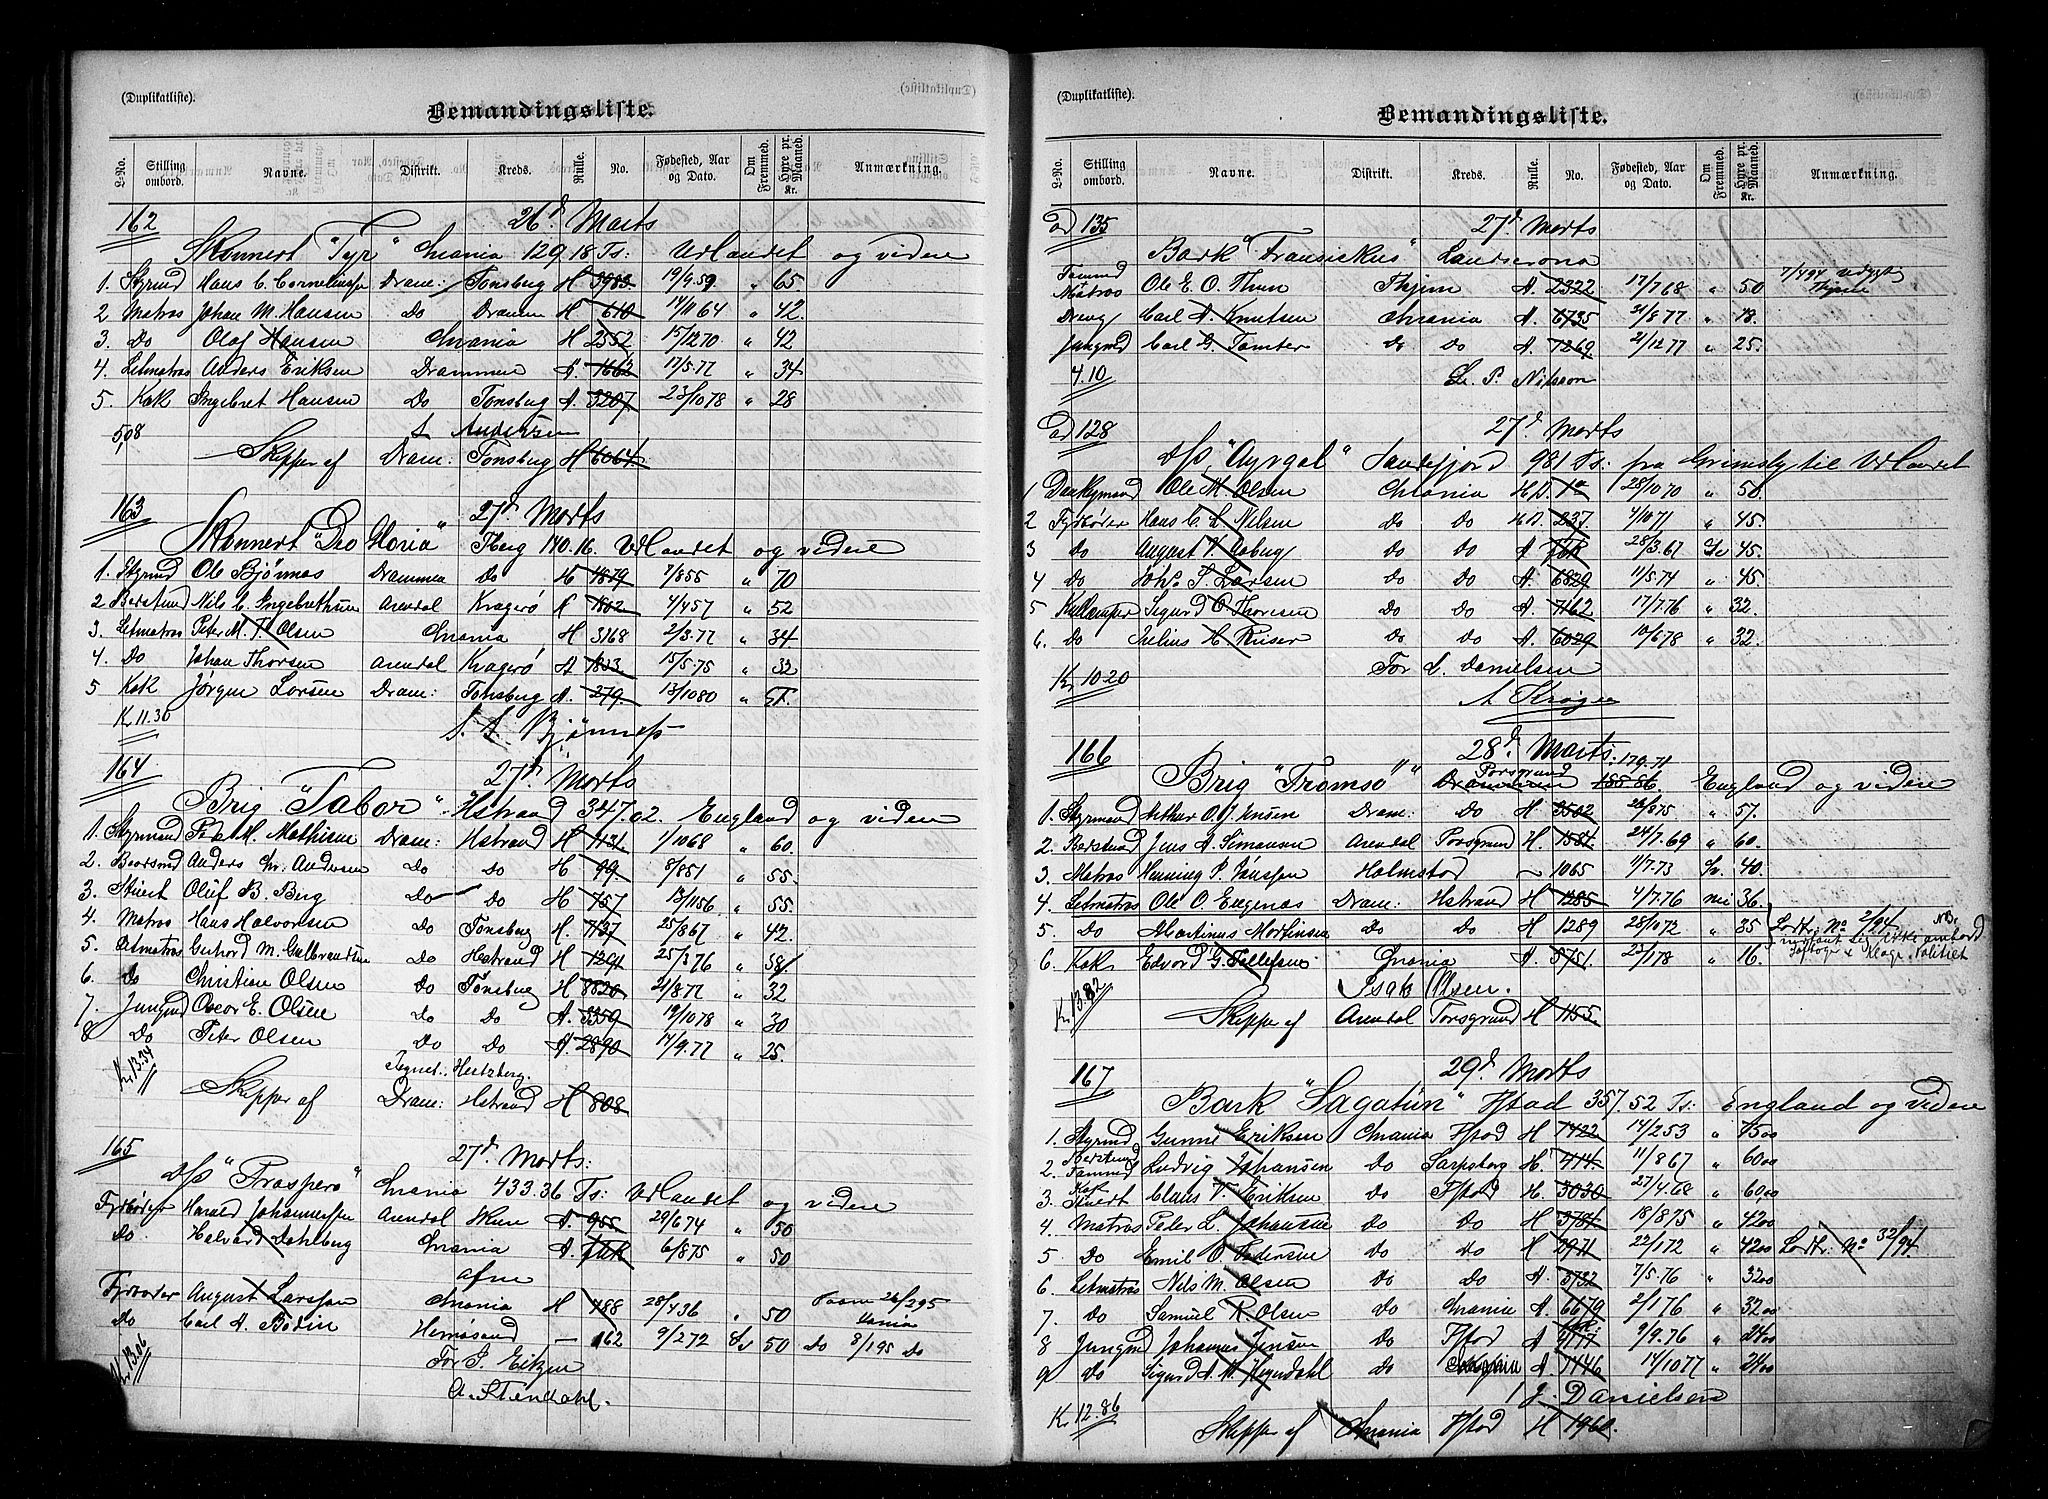 (Duplikatliste).
Bemandingsliste.
L-No. Stilling ombord. Navne. Distrikt. Kreds. Rulle. No. Fødested, Aar og Dato. Om Fremmed. Hyre pr. Maaned. Kr. Anmærkning.
162 26d Marts
Skonnert "Tyr" Chrania 129.18 Ts: Udlandet og videre
1. Styrmd Hans C. Corneliussen Dram: Tønsberg H 3983 19/9.59 " 65
2 Matros Johan M. Hansen Do Dramen H 610 14/11 64 " 42.
3. Do Olaf Hansen Chrania H 2552 15/12 70 " 42
4. Letmatros Anders Eriksen Drammen A. 1662 17/5.77 " 34
5. Kok Ingebret Hansen Do Tønsberg A. 3207 23/10 78 " 28
5,08 S Andersen
Skipper af Dram: Tønsberg H 6064
163 27d Marts
Skonnert "Deo Gloria" Tberg 140.16. Udlandet og videre
1. Styrmd Ole Bjønnes Drammen Do H 4879 7/8 55 " 70
2 Bedstmd Nils C. Ingebretsen Arendal Kragerø H 1802 4/4 57 " 52
3. Letmatros Peter M. T. Olsen Chrania H 3168 2/3.77 " 34
4. Do Johan Thorsen Arendal Kragerø A 1823 15/5.75 " 32
5 Kok Jørgen Larsen Dram: Tønsberg A. 279 13/10 80 "
Kr 11.30
S. A. Bjønnes
164 27d Marts
Brig "Tabor" Hstrand 347.02. England og viden
1. Styrmand Peder M. Mathisen Dram: Hstrand H 1131 1/10 68 " 60.
2. Baadsmd Anders Chr. Andersen Do Do H 99. 8/8 51 " 55.
3. Stuert Oluf B. Berg Do Do H 757 13/11 56 " 55.
4. Matros Hans Halvorsen Do Tønsberg H. 7137 25/8 67 " 42.
5. Letmatros Gerhard M. Gulbrandsen Do Hstrand H 1291 25/3 76 "
6. Do Christian Olsen Do Tønsberg H 8820 21/8.77 " 32
7. Jungmd Oscar E. Olsen Do Do A. 3359 19/10 78 " 30
8 Do Peter Olsen Do Do A. 2890 14/9.77 " 25.
Kr 13.34 Hertzberg.
Skipper af Dram: Hstrand H 808
165 27d Marts:
D/S "Prospero" Chrania 433.36 Ts: Udlandet og videre
Fyrbøder Harald Johannessen Arendal Skien A. 955 29/6 74 " 50
Do. Halvard Dahlberg Chrania A. 6/8 75 " 50
afm
Fyrbøder August Larsson Chrania H 488 28/4 36 " 50 26/2 95
Do Carl A. Bodin Hernøsand — 162 9/2 72 Sv 50 Do 8/1 95 Do
Kr 13.06 For S. Eitzen
A. Stendahl.
(Duplikatliste).
Bemandingsliste.
L-No. Stilling ombord. Navne. Distrikt. Kreds. Rulle. No. Fødested, Aar og Dato. Om Fremmed. Hyre pr. Maaned. Kr. Anmærkning.
ad 135 27d Marts
Bark "Fransiskus" Landscrona
Tømmd + Matros Ole E. O. Thien Thjem A. 2322 17/7 68 " 50 7/4 94 udgyt
Dreng Carl A. Knutsen Chrania A. 6735 21/8 77 " 18.
Jungmd Carl G. Tomter Do Do A. 7269 21/12 77 " 25.
4.10 L. P. Nilsson
ad 128 27d Marts
D/S "Ayrgal" Sandefjord 981 Ts: fra Grimsby til Udlandet
1 Donkeymand Ole M. Olsen Chrania 28/10 70 " 50
2 Fyrbøder Hans C. L. Nilsen Do Do 237 4/10 71 " 45.
3 Do August V. Aaberg Do Do A 28/3.67 Sv 45.
4 Do Joh. S. Larsen Do Do A. 6829 11/5.74 " 45
5 Kullemper Sigurd O. Thoresen Do Do A. 7162 17/7.76 " 32.
6. Do Julius H. Riiser Do Do A. 6029 10/6 78 " 32.
Kr 10.20 For L. Danielsen
A Krogen
166 28d. Marts: 179.71
Brig "Tromsø" Porsgrund Drammen 185.86. England og videre
1. Styrmand Arthur O. J. Jensen Dram: Do H. 2502 26/8 75 " 57.
2. Bedstmd Jens A. Simonsen Arendal Porsgrund H. 1581. 24/7.69 " 60.
3. Matros Henning P. Jönsson Halmstad ~ 1065 11/7.73 Sv. 40.
4. Letmatros Ole O. Engenes Dram: Hstrand H 1285 4/7.76 nei 36
5. Do Martinus Martinsen Do Do H 1289 28/10 72 " 35 Lodtr. No 2/94 NB.
6. Kok Edvard G. Tollefsen Chrania A. 5751 23/1 78 " 16. ikke ombord
Kr 13.82 Isak Olsen.
Skipper af Arendal Porsgrund H 1155.
167 29d Marts
Bark "Sagatun" Fstad 357.52 Ts: England og videre
1. Styrmd Gunni Eriksen Chrania Fstad H 1422 14/2 53 " 75 00
2. Bedstmd Tømmd Ludvig Johansen Do Sarpsborg H. 414. 11/8 67 " 60 00
3 Kok Stuert Claus V. Eriksen Do Fstad H. 3030 27/4.68 " 60 00
4 Matros Peter L. Johansen Do Do H 3781 18/8 75 " 42 00
5 Do Emil O. Pedersen Do Do H 2971 22/1 72 " 42 00 Lodtr. No 32/94
6. Letmatros Nils M. Olsen Do Do A. 3732 7/5.76 " 32 00
7. Do Samuel R. Olsen Do Chrania A 6679 2/1 76 " 32 00
8 Jungmd Johannes Jensen Do Fstad A 9177 9/9.76 " 24 00
9 Do Sigurd A. M. Heyerdahl Do Chrania A 7146 14/10 77 " 24 00
Kr 12.86 J. Danielsen
Skipper af Chrania Fstad H 1960.